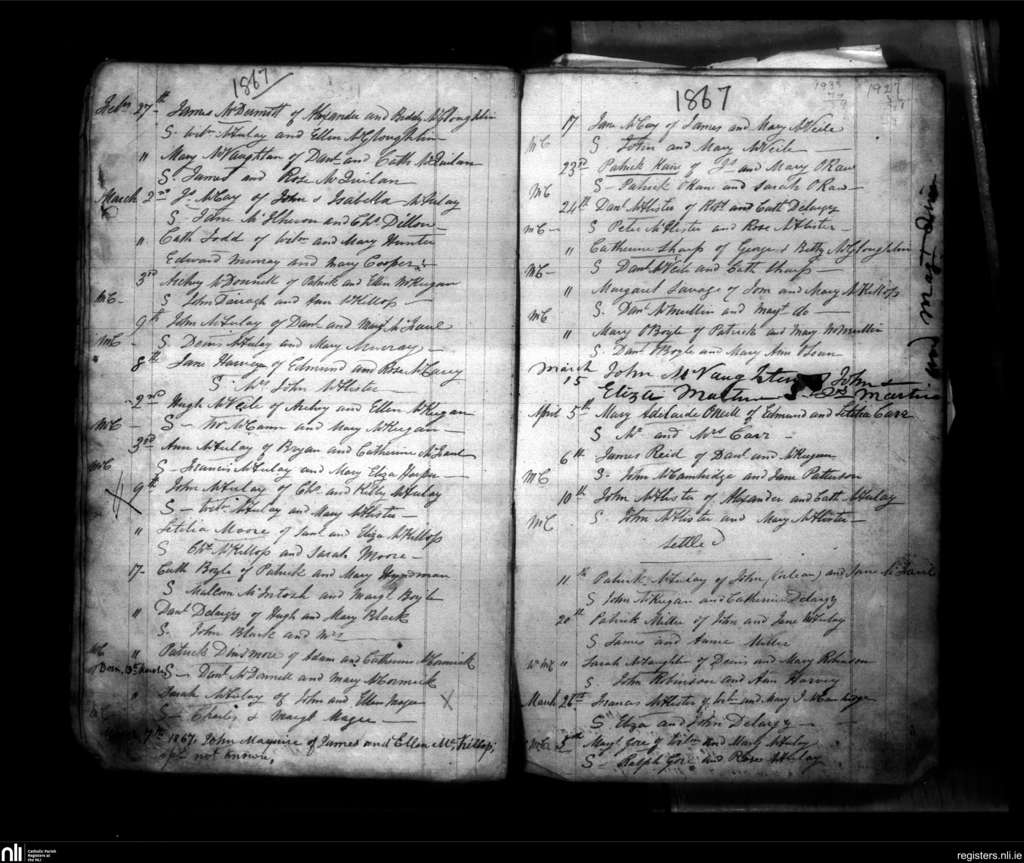 1867
Feby 27th James McDermott of Alexander and Biddy McGloughlin
S. Wm McAulay and Ellen McGloughlin
" Mary McNaughtan of Danl and Cath McQuilan
S. James and Rose McQuilan
March 2nd Js McCay of John & Isabella McAulay
S - Jane McIlheron and Chs Dillon
" Cath Todd of Wm and Mary Hunter
Edward Murray and Mary Cooper
3rd Archey McDonnell of Patrick and Ellen McKeegan
MC - S John Darragh and Ann McKillop -
9th John McAulay of Danl and Margt McFaul
MC - S Denis McAulay and Mary Murray -
8th Jane Harvey of Edmund and Rose McCarry
S. Mrs John McAlister
2nd Hugh McNeile of Archey and Ellen McKeegan
MC - S - Wm McCann and Mary McKeegan -
3rd Ann McAulay of Bryan and Catherine McFaul
MC S - Francis McAulay and Mary Eliza Harper -
9th John McAulay of Chs and Kitty McAulay
S - Wm McAulay and Mary McAlister -
" Letitia Moore of Saml and Eliza McKillop
S Chs McKillop and Sarah Moore -
17 - Cath Boyle of Patrick and Mary Hyndman
S Malcom McIntosh and Margt Boyle
" Danl Delargy of Hugh and Mary Black
S. John Black and Mrs
MC " Patrick Dinsmore of Adam and Catherine McCormick
Born 13th March S - Danl McDonnell and Mary McCormick
" Sarah McAulay of John and Ellen Magee
MC S - Charles & Margt Magee -
7th 1867. John Maguire of James and Ellen McKillop;
not known.
1867
1927
17 Jane McCay of James and Mary McNeile
MC S. John and Mary McNeile -
23rd Patrick Kane of Js and Mary O'Kane
MC S - Patrick O'Kane and Sarah O'Kane -
24th Danl McAlister of Robt and Cath Delargy
MC - S Peter McAlister and Rose McAlister -
" Catherine Sharp of George & Betty McGloughlin
MC - S Danl McNeile and Cath Sharp -
" Margaret Savage of Tom and Mary McKillop
MC S. Danl McMullin and Magt do -
" Mary O'Boyle of Patrick and Mary McMullin
S. Danl O'Boyle and Mary Ann Sloan
March 15 John McNaughten of John &
Eliza Martin S. Martin
April 5th Mary Adelaide O'Neill of Edmund and Letitia Carr
S Mr and Mrs Carr -
6th James Reid of Danl and McKeegan
MC S - John McCambridge and Jane Patterson
10th John McAlister of Alexander and Cath McAulay
MC S John McAlister and Mary McAlister -
Settled
11th Patrick McAulay of John and Jane McFaul
S John McKeegan and Catherine Delargy
20th Patrick Miller of John and Jane McAulay
S James and Annie Miller
MC " Sarah McNaughten of Denis and Mary Robinson
S John Robinson and Ann Harvey
March 26th Francis McAlister of Wm and Mary J. McCambridge
S Eliza and John Delargy -
MC Margt Gore of Wm and Mary McAulay
S - Ralph Gore and Rose McAulay
nli
Catholic Parish
Registers at
the NLI
registers.nli.ie